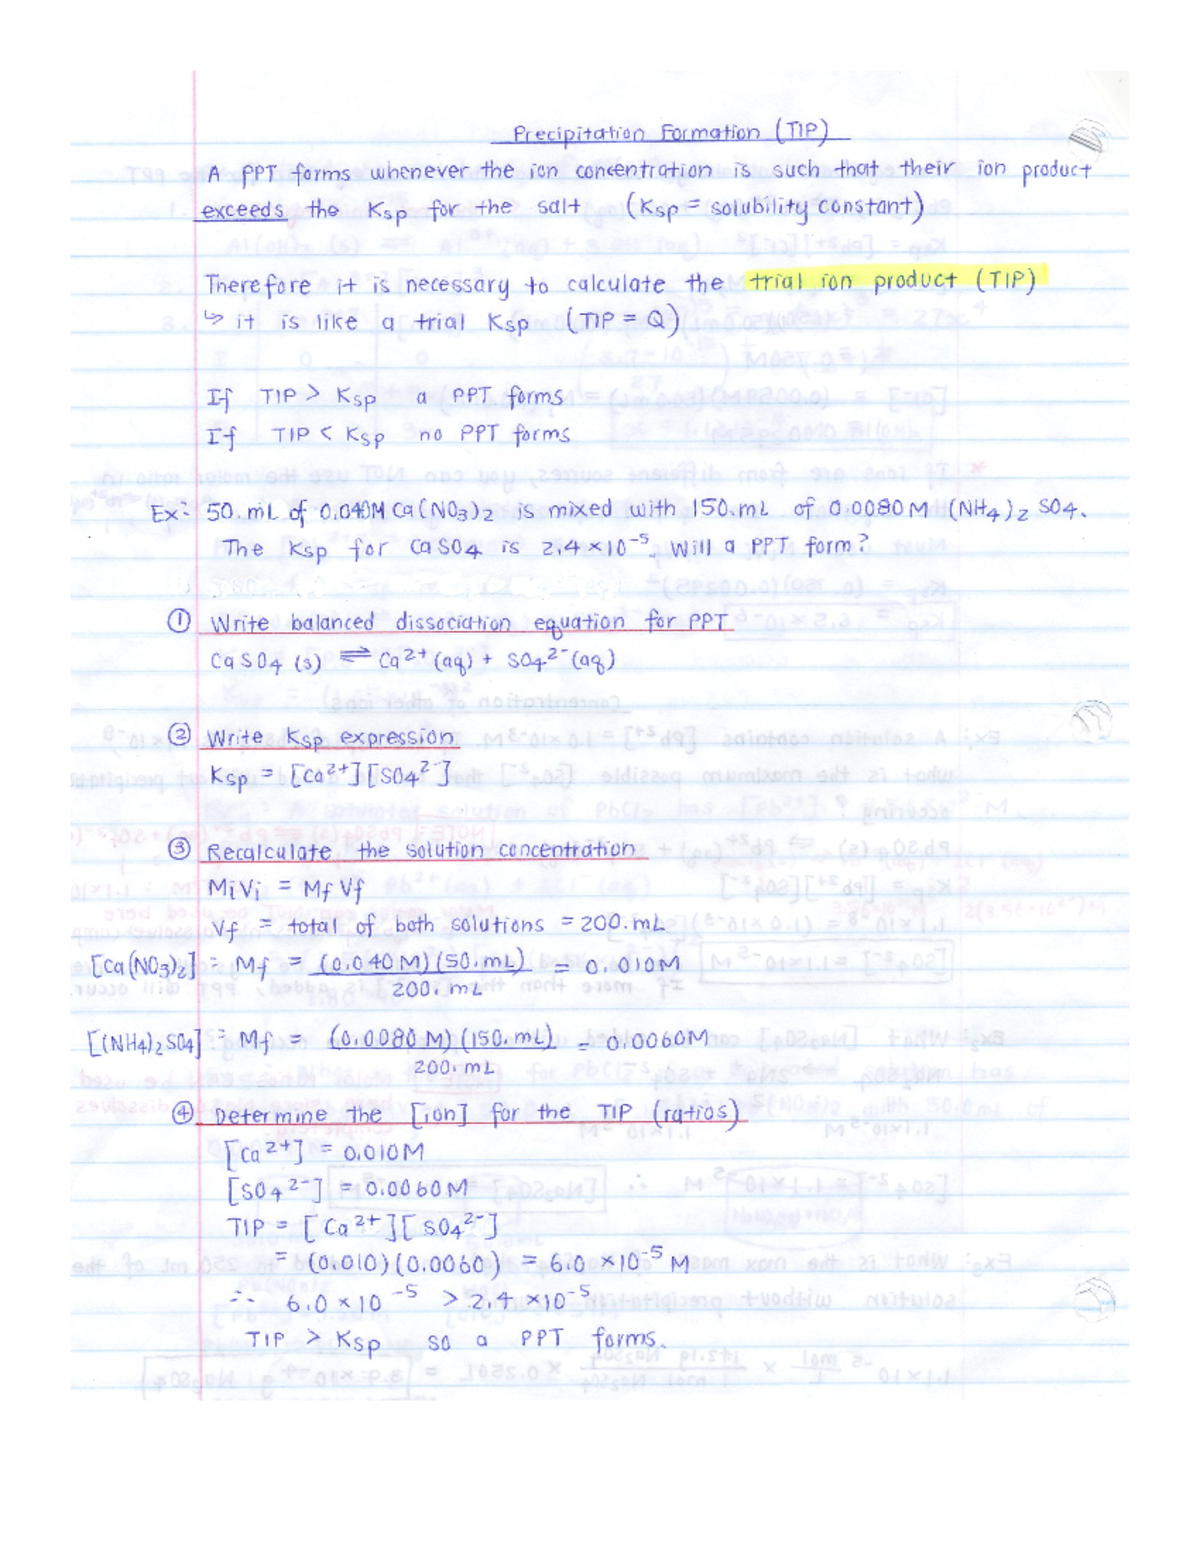 Precipitation Formation (TIP)
A PPT forms whenever the ion concentration is such that their ion product
exceeds the Ksp for the salt (Ksp = solubility constant)
Therefore it is necessary to calculate the trial ion product (TIP)
↳ it is like a trial Ksp (TIP = Q)
If TIP > Ksp a PPT forms
If TIP < Ksp no PPT forms
Ex: 50. mL of 0.040M Ca(NO3)2 is mixed with 150. mL of 0.0080M (NH4)2 SO4.
The Ksp for CaSO4 is 2.4 × 10⁻⁵. Will a PPT form?
① Write balanced dissociation equation for PPT
CaSO4 (s) ⇌ Ca²⁺ (aq) + SO4²⁻ (aq)
② Write Ksp expression
Ksp = [Ca²⁺][SO4²⁻]
③ Recalculate the solution concentration
MiVi = MfVf
Vf = total of both solutions = 200. mL
[Ca(NO3)2] = Mf = (0.040M)(50. mL) = 0.010M
200. mL
[(NH4)2SO4] = Mf = (0.0080 M)(150. mL) = 0.0060M
200. mL
④ Determine the [ion] for the TIP (ratios)
[Ca²⁺] = 0.010M
[SO4²⁻] = 0.0060M
TIP = [Ca²⁺][SO4²⁻]
= (0.010)(0.0060) = 6.0 × 10⁻⁵ M
∴ 6.0 × 10⁻⁵ > 2.4 × 10⁻⁵
TIP > Ksp so a PPT forms.